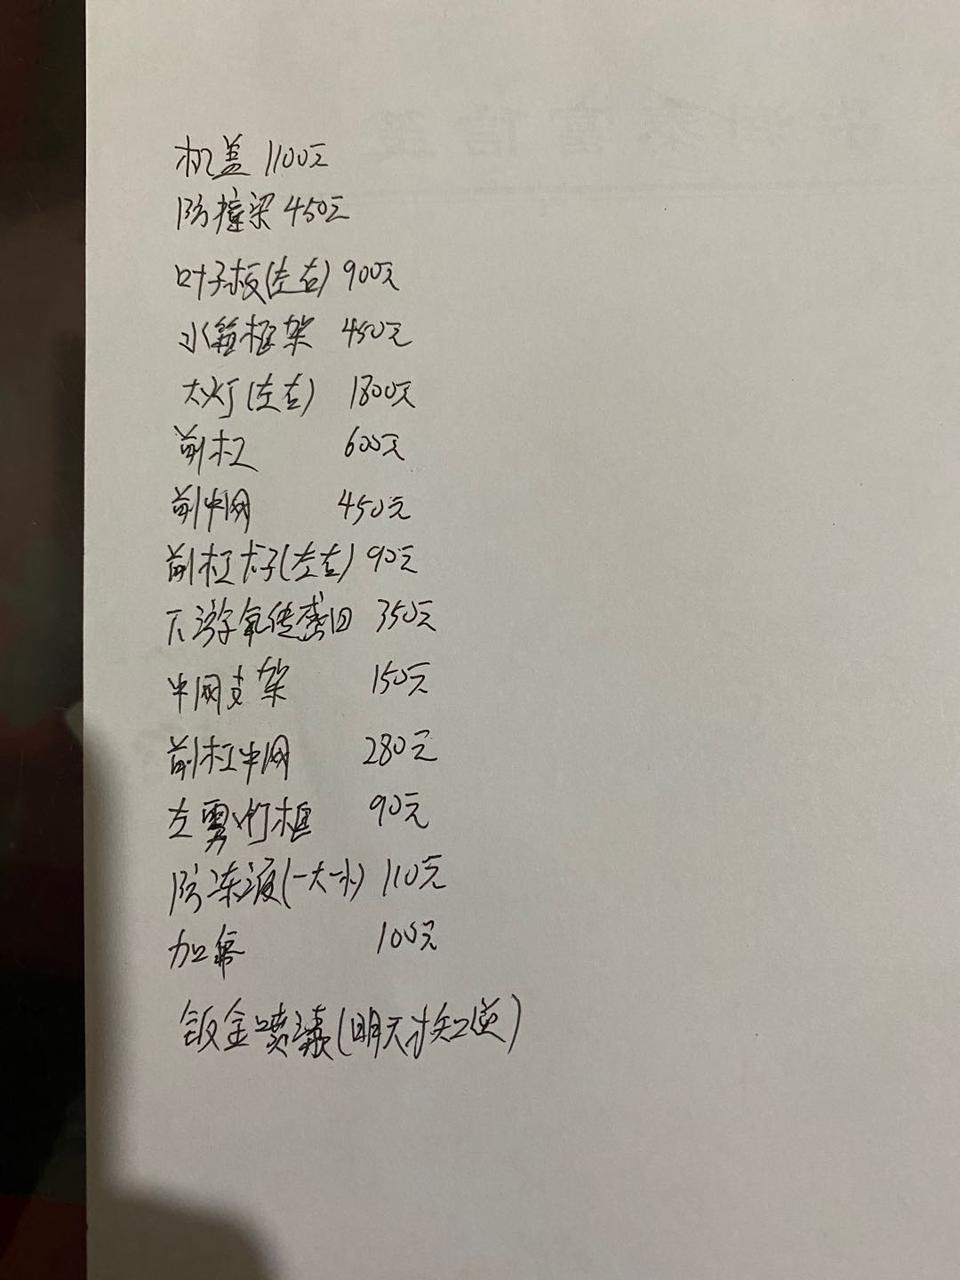 机盖 1100元
防撞梁 450元
叶子板(左右) 900元
水箱框架 450元
大灯(左右) 1800元
前杠 600元
前中网 450元
前杠卡子(左右) 90元
下游氧传感 350元
中网支架 150元
前杠中网 280元
左雾灯框 90元
防冻液(一大一小) 110元
加 100元
钣金喷漆(明天才知道)